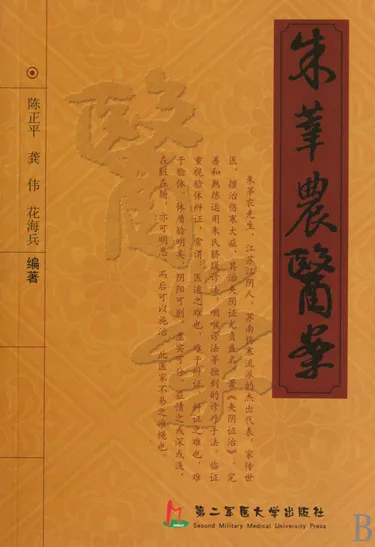 朱莘農醫案
陈正平 龚伟 花海兵 编著
醫
朱莘农先生,江苏江阴人,苏南伤寒流派的杰出代表,家传世
医,擅治伤寒大症,其治夹阴证尤负盛名,著《夹阴证治》,完
善和熟练运用朱氏脐腹诊法、咽喉诊法等独到的诊疗手法,临证
重视验体辨证,常谓:医道之难也,难于辨证,辨证之难也,难
于验体,体质验明矣,阴阳可别,虚实可分,病情之或深或浅,
在脏在腑,亦可明悉,而后可以施治,此医家不易之准绳也
第二军医大学出版社
Second Military Medical University Press
B